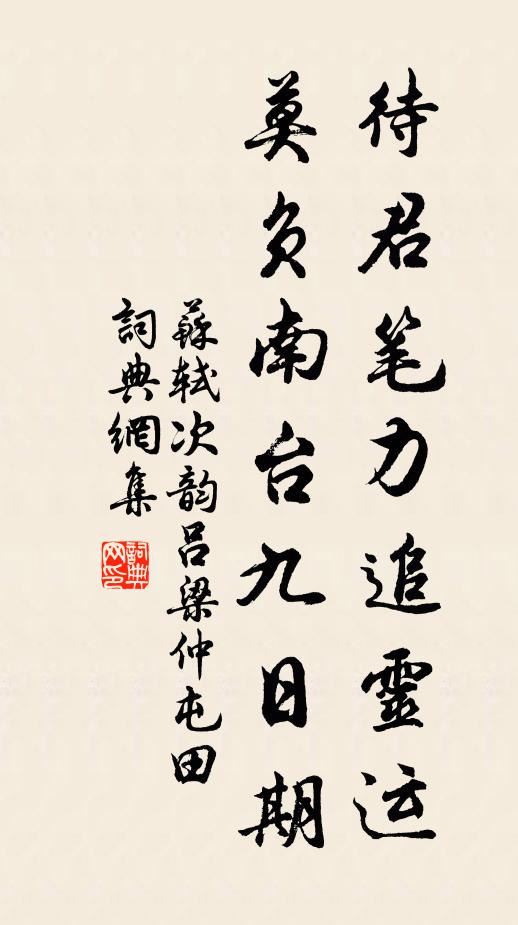 待君笔力追靈运
莫负南台九日期
蘇轼次韵吕梁仲屯田
詞典網集
詞典网印